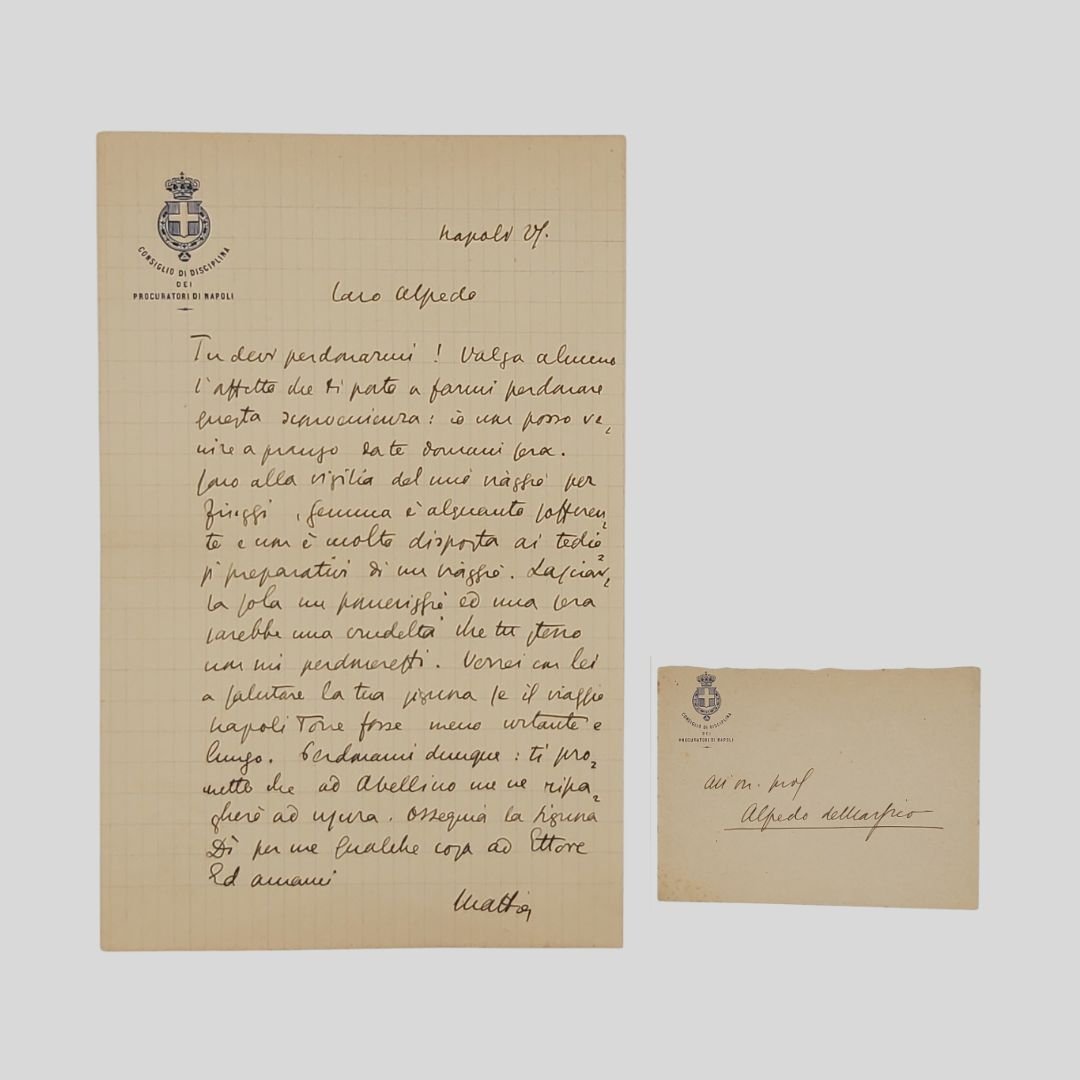 CONSIGLIO DI DISCIPLINA
DEI
PROCURATORI DI NAPOLI
Napoli 27.
Caro Alfredo
Tu devi perdonarmi ! Valga almeno
l'affetto che ti porto a farmi perdonare
questa sconvenienza: io non posso ve-
nire a pranzo da te domani sera.
Sono alla vigilia del mio viaggio per
Fiuggi, Gemma è alquanto sofferen-
te e non è molto disposta ai tedio-
si preparativi di un viaggio. Lasciar-
la sola un pomeriggio ed una sera
sarebbe una crudeltà che tu stesso
non mi perdoneresti. Verrei con lei
a salutare la tua signora se il viaggio
Napoli Torre fosse meno urtante e
lungo. Perdonami dunque: ti pro-
metto che ad Avellino me ne ripa-
gherò ad usura. Ossequia la signora
Dì per me qualche cosa ad Ettore
Ed amami
Mattia
CONSIGLIO DI DISCIPLINA
DEI
PROCURATORI DI NAPOLI
All'on. prof
Alfredo deMarsico